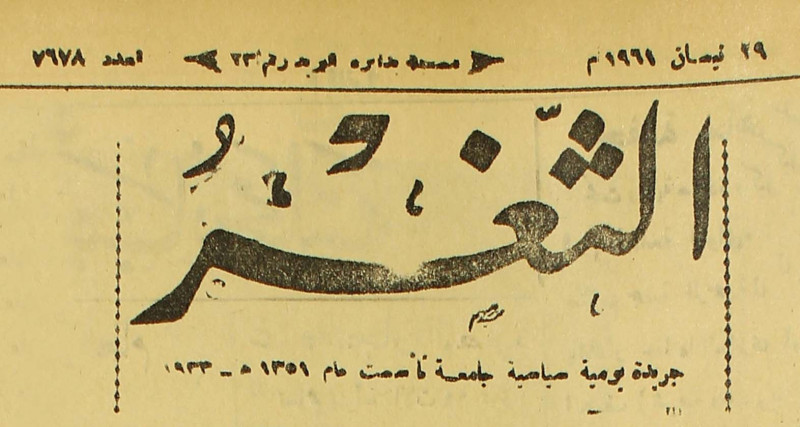 ٢٩ نيسان ١٩٦١ م
مسجلة بدائرة البريد رقم ٢٣
العدد ٧٦٧٨
الثغر
جريدة يومية سياسية جامعة تأسست عام ١٣٥١ هـ - ١٩٣٣